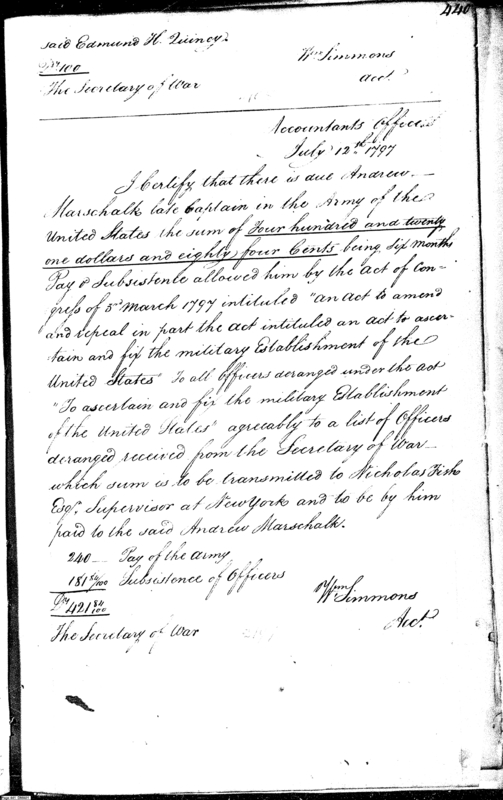 440
said Edmund H. Quincy.
Drs 100
Wm Simmons
Acct.
The Secretary of War
Accountants Office
July 12th 1797
I Certify that there is due Andrew
Marschalk late Captain in the Army of the
United States the sum of Four hundred and twenty
one dollars and eighty four Cents being Six months
Pay & Subsistence allowed him by the act of Con-
gress of 3d March 1797 intituled "an act to amend
and repeal in part the act intituled an act to ascer-
tain and fix the military Establishment of the
United States To all Officers deranged under the act
"To ascertain and fix the military Establishment
of the United States" agreeably to a list of Officers
deranged received from the Secretary of War
which sum is to be transmitted to Nicholas Fish
Esqr. Supervisor at New York and to be by him
paid to the said Andrew Marschalk.
240 — Pay of the Army
181 84/100 Subsistence of Officers
Drs 421 84/100
Wm Simmons
Acct.
The Secretary of War